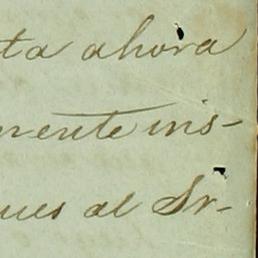 ta ahora
mente ins-
ues al Sr-